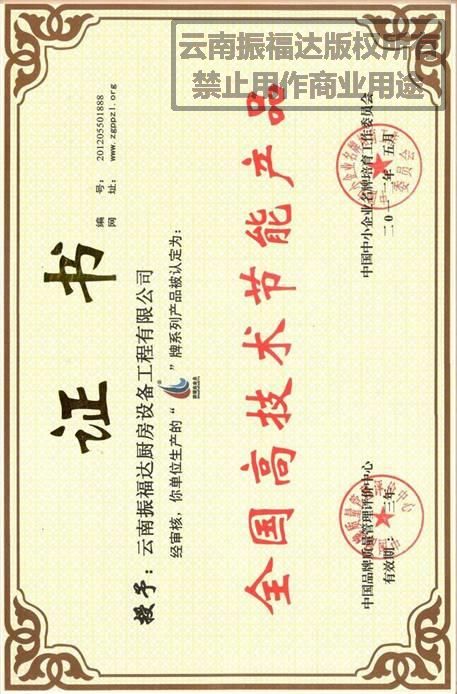 云南振福达版权所有
禁止用作商业用途
证书
编 号：201205501888
网 址：www.zgppzl.org
授予：云南振福达厨房设备工程有限公司
经审核，你单位生产的“ ”牌系列产品被认定为：
全国高技术节能产品
中国品牌质量管理评价中心
有效期：三年
中国中小企业名牌培育工作委员会
二0一二年 五月